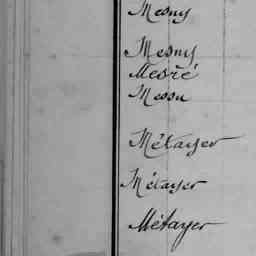 Mesny
Mesny
Mesré
Messu
Métayer
Métayer
Métayer